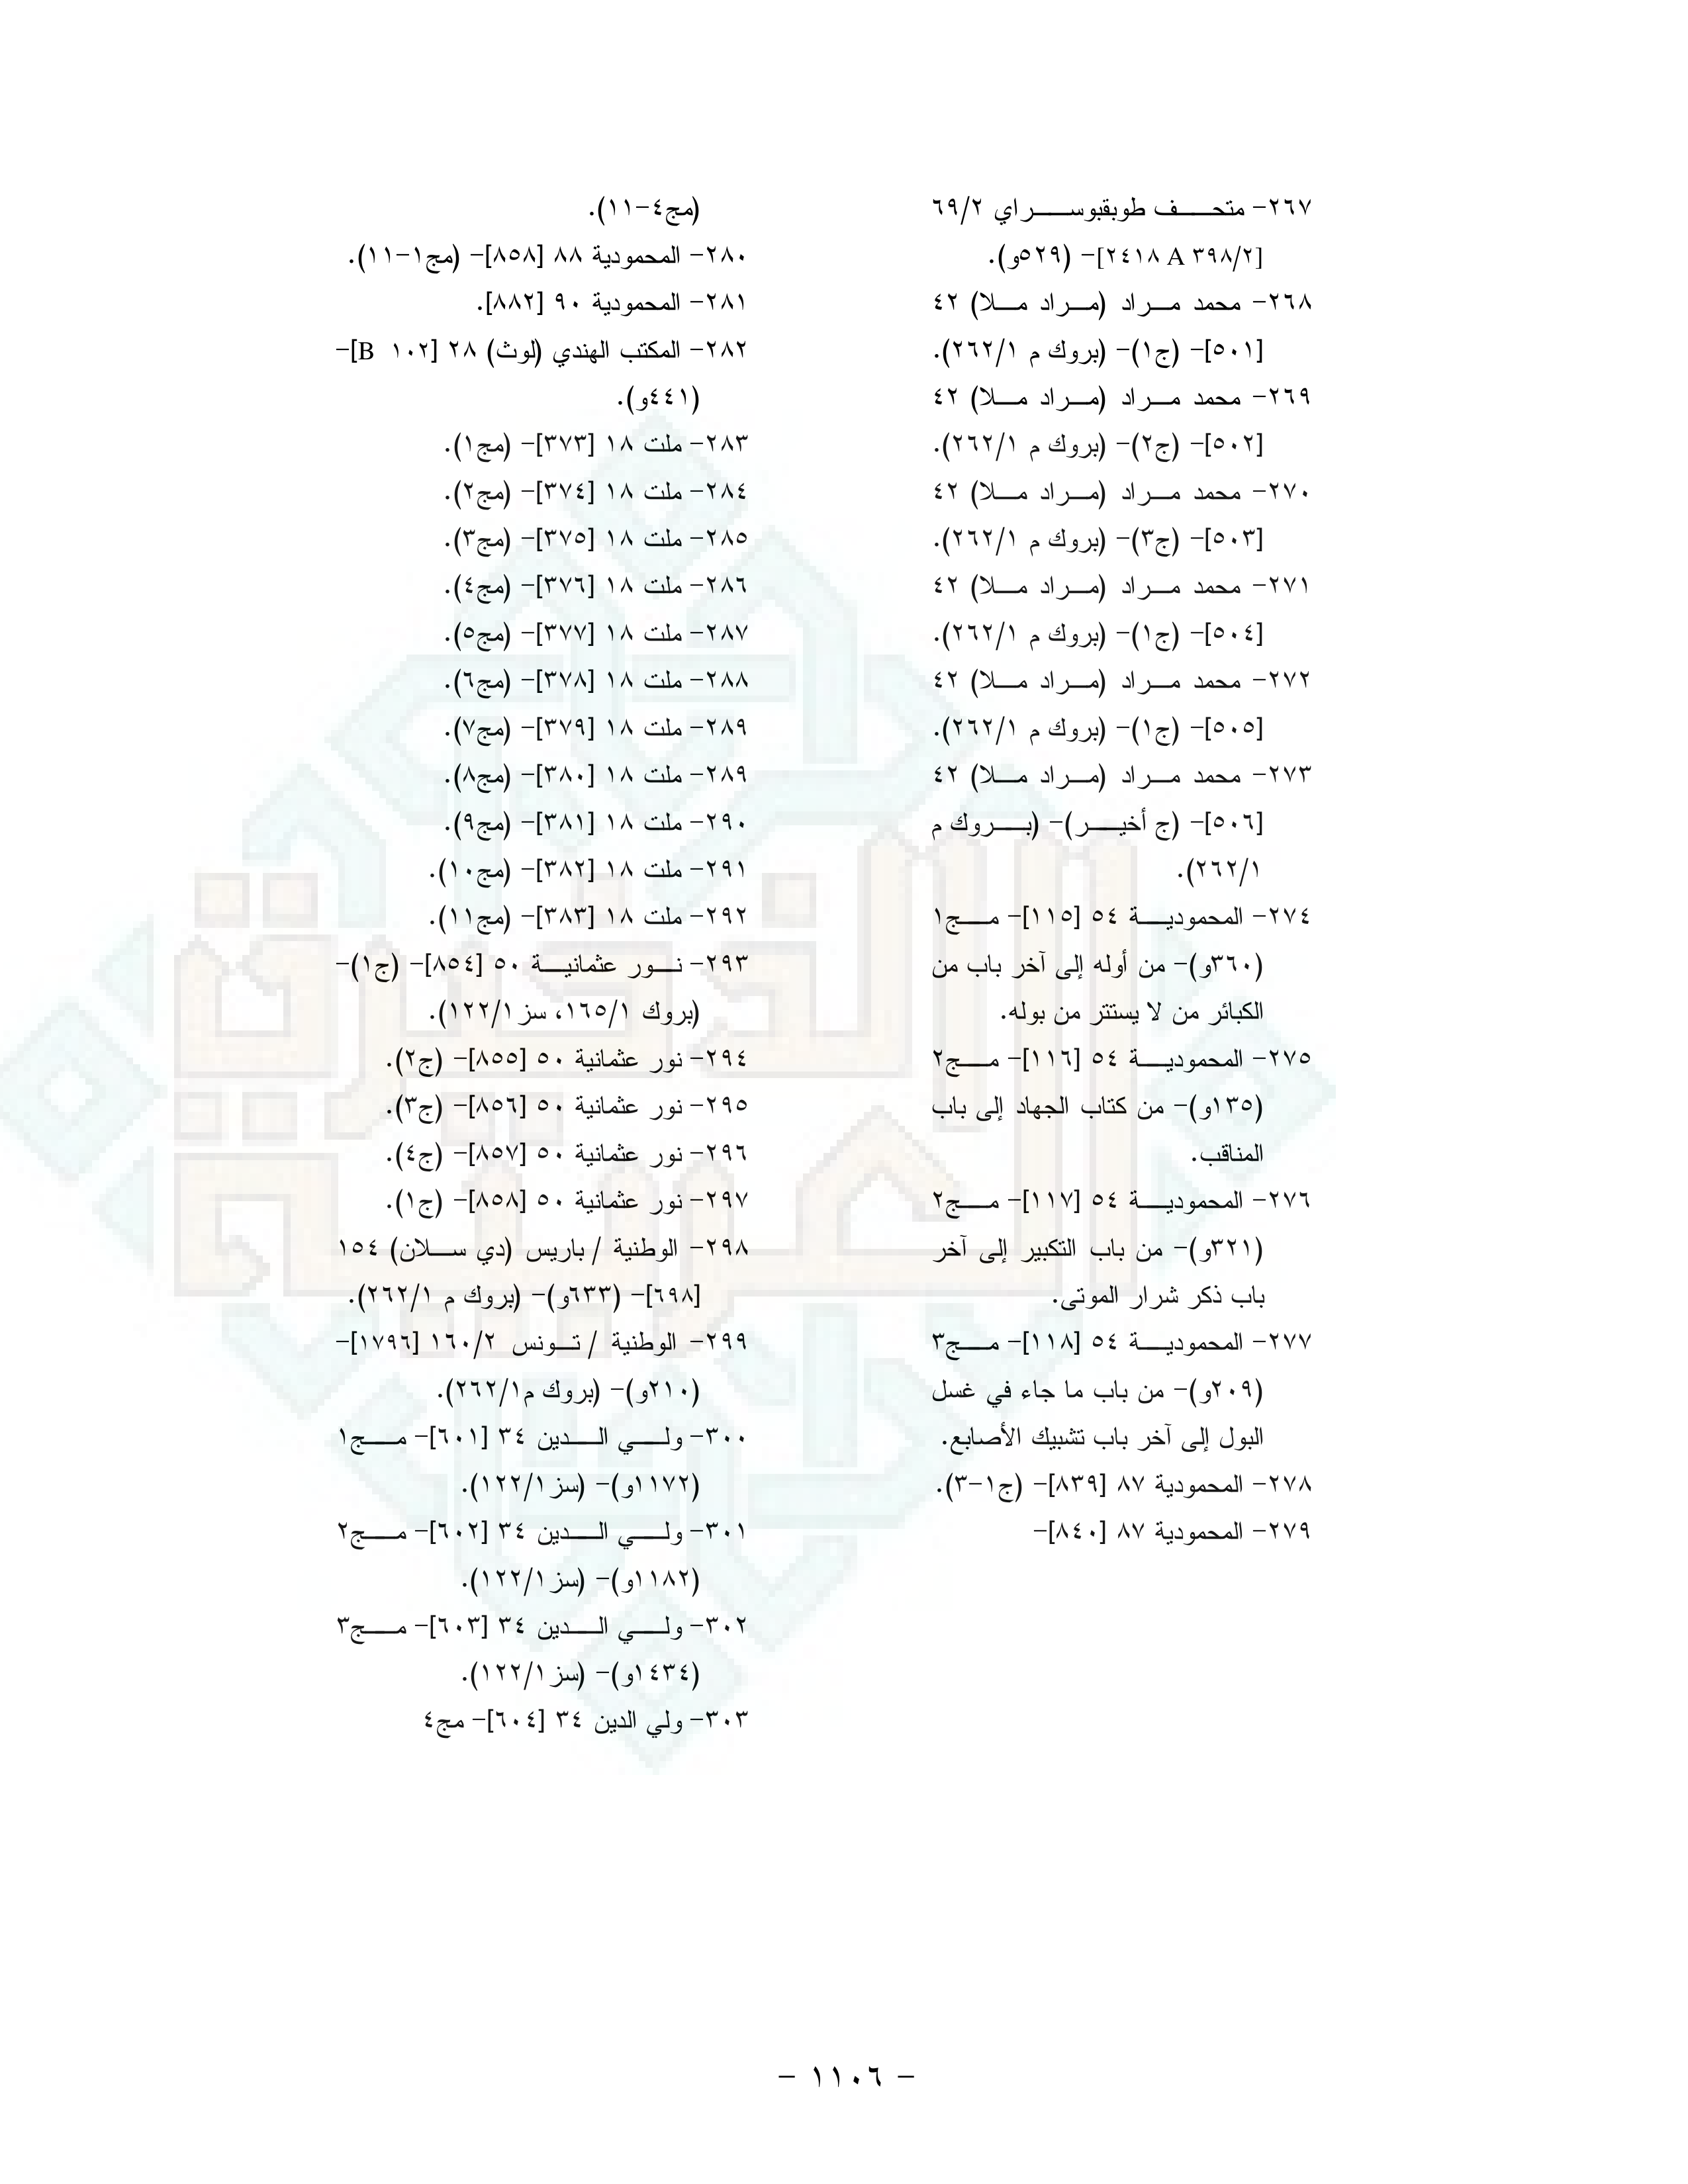 ٢٦٧- متحف طوبقبوسراي ٦٩/٢
[٢٤١٨ A ٣٩٨/٢]- (٥٢٩و).
٢٦٨- محمد مراد (مراد ملا) ٤٢
[٥٠١]- (ج١)- (بروك م ٢٦٢/١).
٢٦٩- محمد مراد (مراد ملا) ٤٢
[٥٠٢]- (ج٢)- (بروك م ٢٦٢/١).
٢٧٠- محمد مراد (مراد ملا) ٤٢
[٥٠٣]- (ج٣)- (بروك م ٢٦٢/١).
٢٧١- محمد مراد (مراد ملا) ٤٢
[٥٠٤]- (ج١)- (بروك م ٢٦٢/١).
٢٧٢- محمد مراد (مراد ملا) ٤٢
[٥٠٥]- (ج١)- (بروك م ٢٦٢/١).
٢٧٣- محمد مراد (مراد ملا) ٤٢
[٥٠٦]- (ج أخير)- (بروك م
٢٦٢/١).
٢٧٤- المحمودية ٥٤ [١١٥]- مج١
(٣٦٠و)- من أوله إلى آخر باب من
الكبائر من لا يستتر من بوله.
٢٧٥- المحمودية ٥٤ [١١٦]- مج٢
(١٣٥و)- من كتاب الجهاد إلى باب
المناقب.
٢٧٦- المحمودية ٥٤ [١١٧]- مج٢
(٣٢١و)- من باب التكبير إلى آخر
باب ذكر شرار الموتى.
٢٧٧- المحمودية ٥٤ [١١٨]- مج٣
(٢٠٩و)- من باب ما جاء في غسل
البول إلى آخر باب تشبيك الأصابع.
٢٧٨- المحمودية ٨٧ [٨٣٩]- (ج١-٣).
٢٧٩- المحمودية ٨٧ [٨٤٠]-
(مج٤-١١).
٢٨٠- المحمودية ٨٨ [٨٥٨]- (مج١-١١).
٢٨١- المحمودية ٩٠ [٨٨٢].
٢٨٢- المكتب الهندي (لوث) ٢٨ [B ١٠٢]-
(٤٤١و).
٢٨٣- ملت ١٨ [٣٧٣]- (مج١).
٢٨٤- ملت ١٨ [٣٧٤]- (مج٢).
٢٨٥- ملت ١٨ [٣٧٥]- (مج٣).
٢٨٦- ملت ١٨ [٣٧٦]- (مج٤).
٢٨٧- ملت ١٨ [٣٧٧]- (مج٥).
٢٨٨- ملت ١٨ [٣٧٨]- (مج٦).
٢٨٩- ملت ١٨ [٣٧٩]- (مج٧).
٢٨٩- ملت ١٨ [٣٨٠]- (مج٨).
٢٩٠- ملت ١٨ [٣٨١]- (مج٩).
٢٩١- ملت ١٨ [٣٨٢]- (مج١٠).
٢٩٢- ملت ١٨ [٣٨٣]- (مج١١).
٢٩٣- نور عثمانية ٥٠ [٨٥٤]- (ج١)-
(بروك ١٦٥/١، سز ١٢٢/١).
٢٩٤- نور عثمانية ٥٠ [٨٥٥]- (ج٢).
٢٩٥- نور عثمانية ٥٠ [٨٥٦]- (ج٣).
٢٩٦- نور عثمانية ٥٠ [٨٥٧]- (ج٤).
٢٩٧- نور عثمانية ٥٠ [٨٥٨]- (ج١).
٢٩٨- الوطنية / باريس (دي سلان) ١٥٤
[٦٩٨]- (٦٣٣و)- (بروك م ٢٦٢/١).
٢٩٩- الوطنية / تونس ١٦٠/٢ [١٧٩٦]-
(٢١٠و)- (بروك م٢٦٢/١).
٣٠٠- ولي الدين ٣٤ [٦٠١]- مج١
(١١٧٢و)- (سز ١٢٢/١).
٣٠١- ولي الدين ٣٤ [٦٠٢]- مج٢
(١١٨٢و)- (سز ١٢٢/١).
٣٠٢- ولي الدين ٣٤ [٦٠٣]- مج٣
(١٤٣٤و)- (سز ١٢٢/١).
٣٠٣- ولي الدين ٣٤ [٦٠٤]- مج٤
- ١١٠٦ -
الذخيرة
العربية